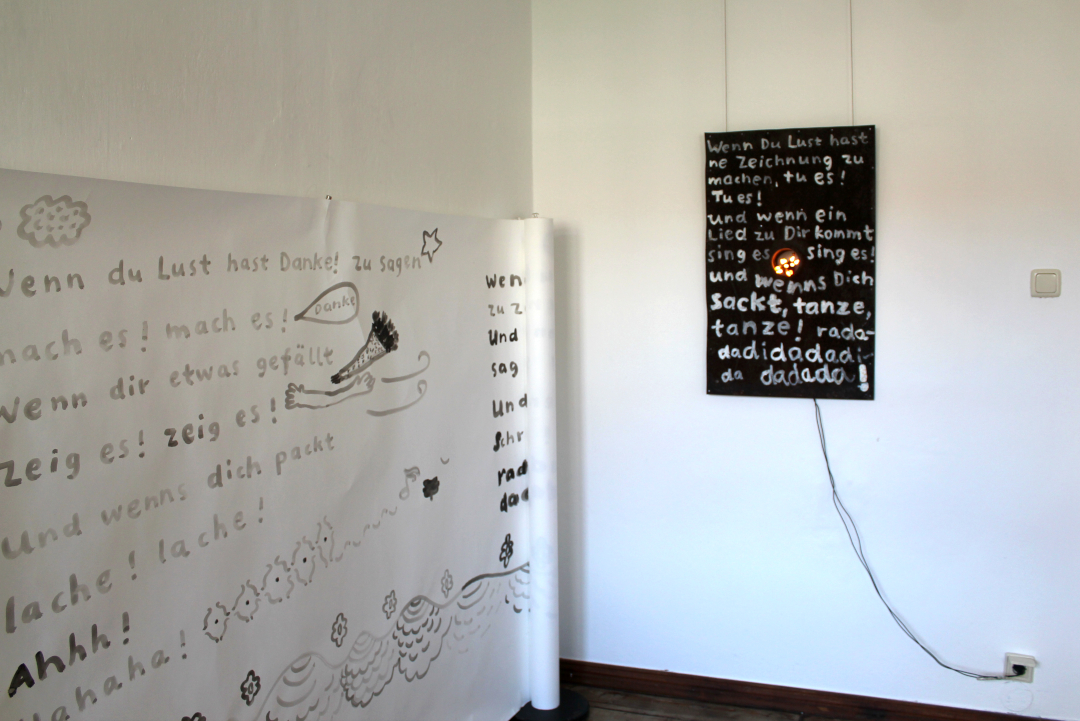 Wenn du Lust hast Danke! zu sagen
mach es! mach es!
Danke
Wenn dir etwas gefällt
zeig es! zeig es!
Und wenns dich packt
lache! lache!
Ahhh!
Hahaha!
Wen
zu z
Und
sag
Und
Schr
rad
dad
Wenn Du Lust hast
ne Zeichnung zu
machen, tu es!
Tu es!
und wenn ein
Lied zu Dir kommt
sing es sing es!
und wenns Dich
sackt, tanze,
tanze! rada-
dadidadadi-
da dadada!